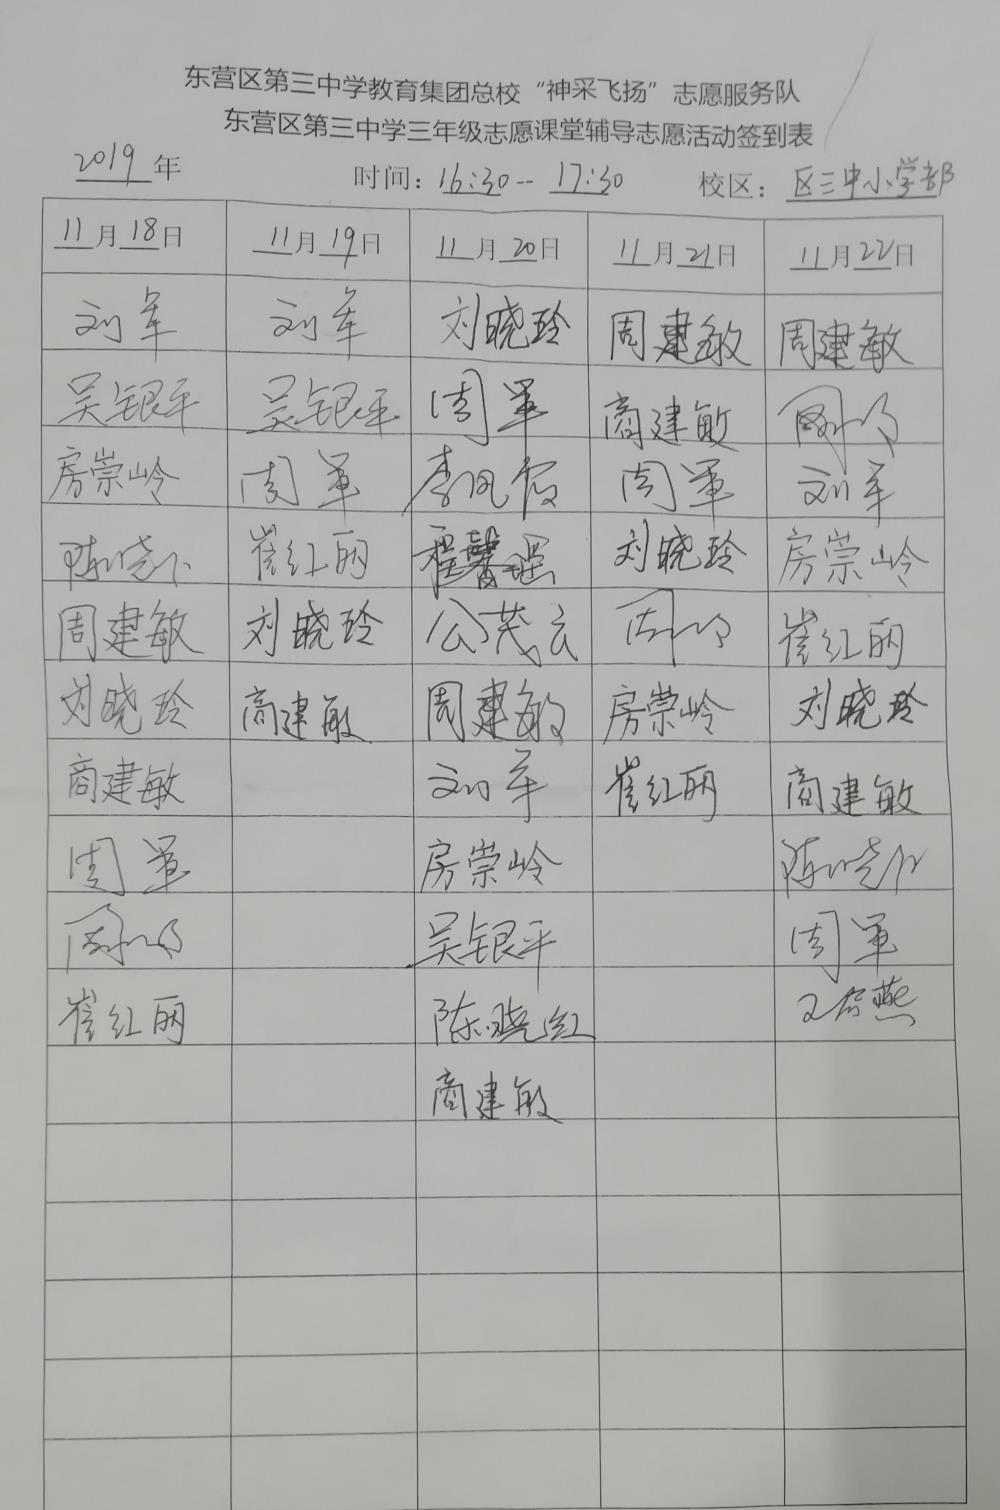 东营区第三中学教育集团总校“神采飞扬”志愿服务队
东营区第三中学三年级志愿课堂辅导志愿活动签到表
2019年 时间：16:30-- 17:30 校区：区三中小学部
11月18日 11月19日 11月20日 11月21日 11月22日
刘军 刘军 刘晓玲 周建敏 周建敏
吴银平 吴银平 周军 商建敏
房崇岭 周军 李凤霞 周军 刘军
崔红丽 程馨瑶 刘晓玲 房崇岭
周建敏 刘晓玲 公茂云 崔红丽
刘晓玲 商建敏 周建敏 房崇岭 刘晓玲
商建敏 刘军 崔红丽 商建敏
周军 房崇岭
吴银平 周军
崔红丽 陈晓红
商建敏